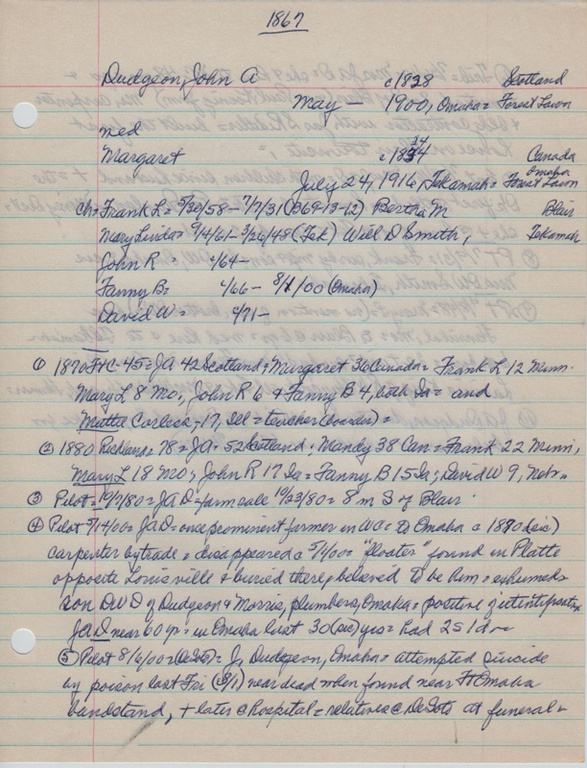 1867
Dudgeon, John A c1828 Scotland
May — 1900, Omaha = Forest Lawn
med
Margaret c1834 Canada
July 24, 1916, Tekamah = Omaha Forest Lawn
ch = Frank L = 5/30/58 - 7/7/31 (B69-13-12) Bertha M Blair
Mary Linda = 9/4/61 - 3/26/48 (Tek) Will D Smith, Tekamah
John R = 4/64 -
Fanny B = 4/66 - 8/1/00 (Omaha)
David W = 4/71 -
① 1870 FtC-45 = JA 42 Scotland, Margaret 36 Canada = Frank L 12 Minn.
Mary L 8 Mo, John R 6 & Fanny B 4, both Ia = and
Mattie 17, Ill = teacher (boarder) =
② 1880 Richland 78 = JA = 52 Scotland; Mandy 38 Can = Frank 22 Minn,
Mary L 18 Mo; John R 17 Ia = Fanny B 15 Ia; David W 9, Nebr..
③ Pilot = 10/7/80 = JA D = farm sale 10/23/80 = 8 m S of Blair
④ Pilot 5/14/00 = JA D = once prominent farmer in WC = to Omaha c 1870 (sic)
carpenter by trade = disappeared c 5/1/00 = "floater" found in Platte
opposite Louisville & buried there, believed to be him = exhumed =
son DWD of Dudgeon & Morris, plumbers, Omaha = positive
JAD near 60 yr = in Omaha last 30 (sic) yrs = had 2s 1d
⑤ Pilot 8/6/00 = (DeSoto) = J. Dudgeon, Omaha = attempted suicide
by poison last Fri (8/1) near dead when found near Ft Omaha
bandstand, + later @ hospital = relatives @ DeSoto at funeral